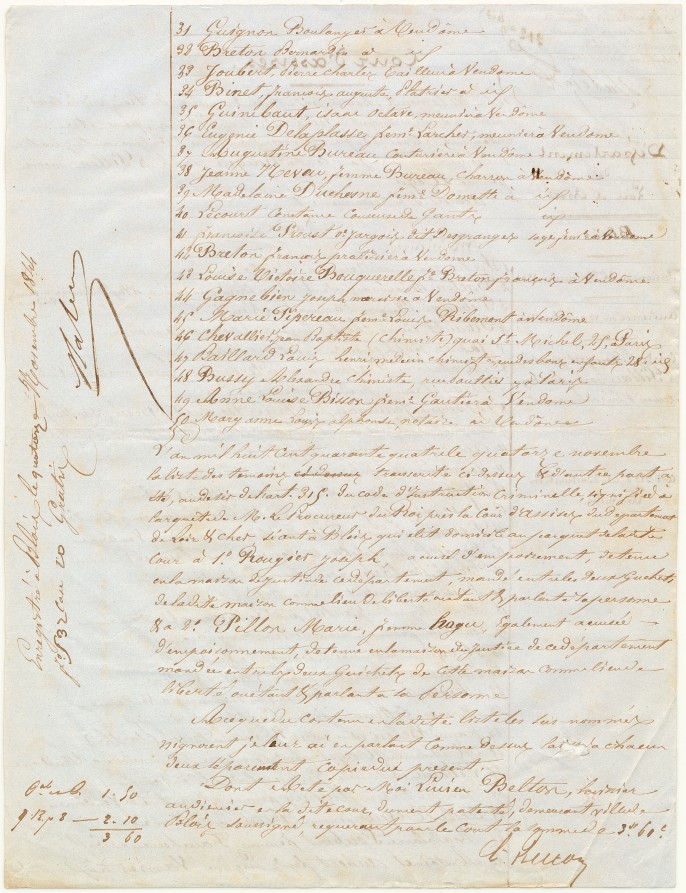 31 Guignon Boulanger à Vendôme
32 Breton Bernardin à id
33 Joubert, Pierre Charles Tailleur à Vendome
34 Binet françois auguste, Platrier à id
35 Guinebaut, isaac Octave, meunier à Vendôme
36 Eugenie Delaplasse femme Larcher, meunier à Vendome
37 Augustine Bureau couturière à Vendôme
38 Jeanne Nevou, femme Bureau, charron à Vendome
39 Madelaine Duchesne femme Domette à id
40 Lécourt Constance couseuse de Gants id
41 françoise Proust Ve Jargois dit Desgranges sage femme à Vendome
42 Breton françois à Vendome
43 Louise Victoire Bouquerelle fe Breton françois à Vendôme
44 Gagnebien joseph à Vendôme
45 Marie Pipereau feme Louis Ribemont à Vendôme
46 Chevallier, jean Baptiste (Chimiste) quai St Michel, 25, Paris
47 Baillard Louis henri médecin chimiste rue des bons enfants 28 id
48 Bussy Alexandre Chimiste, à Paris
49 Anne Louise Bisson feme Gautier à Vendôme
50 Mary anne Louis alphonse, notaire à Vendôme
L'an mil huit cent quarante quatre le quatorze novembre
la liste des temoins transcrite ci dessus & d'autre part a
été, au desir de l'art. 315. du code d'Instruction Criminelle, signifiée à
la requête de M. Le Procureur du Roi près la Cour d'assises du département
de Loir & Cher séant à Blois qui élit domicile au parquet de ladite
Cour à 1° Rougier joseph accusé d'empoisonnement, détenu
en la maison de justice de ce département, mandé entre les deux Guichets
de ladite maison comme lieu de liberté où étant & parlant à sa personne
& à 2° Pillon Marie, femme hagu, également accusée
d'empoisonnement, detenue en la maison de justice de ce departement
mandée entre les deux Guichets de cette maison comme lieu de
liberté où étant & parlant à sa Personne
A ce que du contenu en ladite liste les sus nommés
n'ignorent je leur ai en parlant comme dessus laissé à chacun
d'eux séparément copie du present.
Dont acte par Moi Lucien Belton, huissier
audiencier en ladite cour, dument patenté, demeurant ville de
Blois soussigné requerant pour le Cout la somme de 3f 60c
L. Belton
Enregistré à Blois le quatorze Novembre 1844
fo 132 Case 20 Gratis
Oal et C. 1. 50
9 R p s — 2. 10
3 60